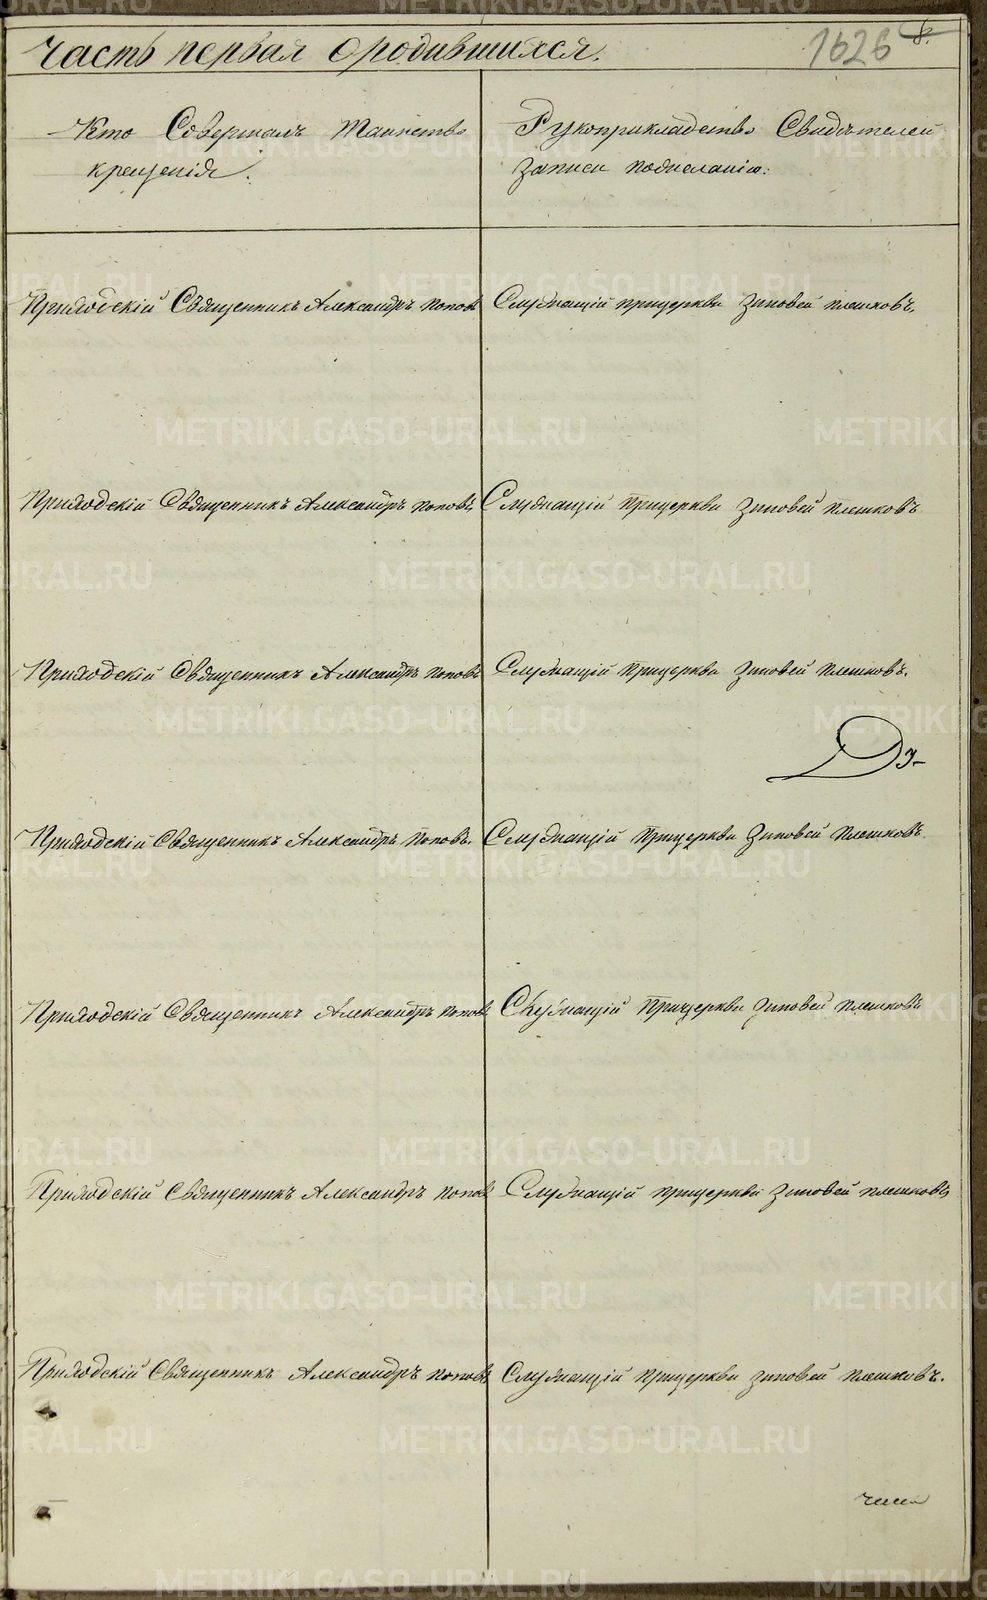 Часть первая о родившихся.
1626
Кто Совершалъ Таинство
крещенія.
Рукоприкладство Свидѣтелей
записи
Приходскій Священникъ Александръ Поповъ
Служащій прицеркви Зиновей Плешковъ.
Приходскій Священникъ Александръ Поповъ
Служащій прицеркви Зиновей Плешковъ
Приходскій Священникъ Александръ Поповъ
Служащій прицеркви Зиновей Плешковъ.
Приходскій Священникъ Александръ Поповъ.
Служащій прицеркви Зиновей Плешковъ.
Приходскій Священникъ Александръ Поповъ
Служащій Прицеркви Зиновей Плешковъ
Приходскій Священникъ Александръ Поповъ
Служащій прицеркви Зиновей Плешковъ
Приходскій Священникъ Александръ Поповъ
Служащій прицеркви Зиновей Плешковъ.
METRIKI.GASO-URAL.RU